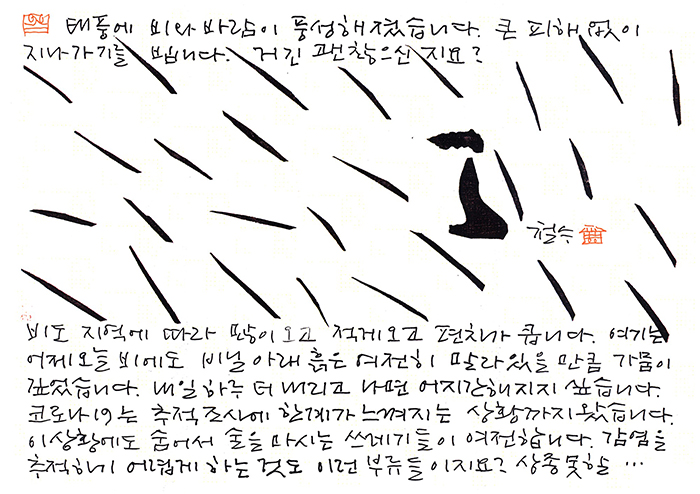 태풍에 비와 바람이 풍성해졌습니다. 큰 피해 없이
지나가기를 빕니다. 거긴 괜찮으신지요?
철수
비도 지역에 따라 많이오고 적게오고 편차가 큽니다. 여기는
어제오늘 비에도 비닐 아래 흙은 여전히 말라있을 만큼 가뭄이
깊었습니다. 내일 하루 더 내리고 나면 어지간해지지 싶습니다.
코로나19는 추적조사에 한계가 느껴지는 상황까지 왔습니다.
이 상황에도 숨어서 술을 마시는 쓰레기들이 여전합니다. 감염을
추적하기 어렵게 하는 것도 이런 부류들이지요? 상종못할 …